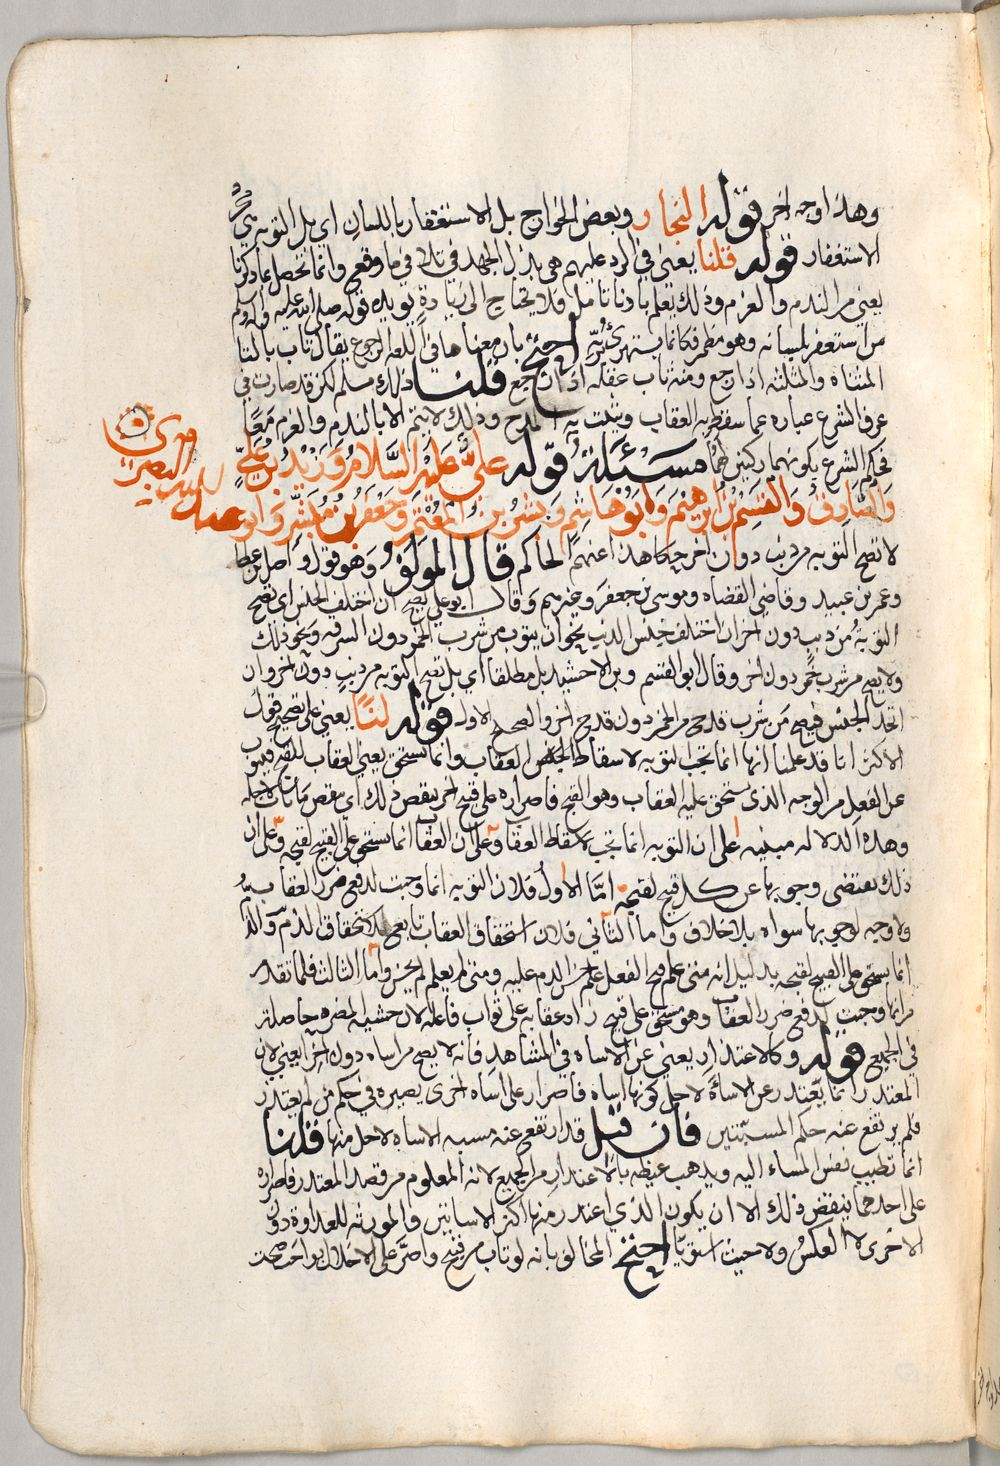 وهذا وجه اخر قوله النجار وبعض الخوارج بل الاستغفار باللسان اي بل التوبه هي
الاستغفار قوله قلنا يعني في الرد عليهم هي بذل الجهد في تلافي ما وقع وانما تحصل بما ذكرنا
يعني من الندم والعزم وذلك يعلم بادنا تامل فلا يحتاج الى زيادة يؤيده قوله صلى الله عليه واله وسلم
من استغفر بلسانه وهو مصر فكانما يستهزئ بربه احتج بان معناها في اللغه الرجوع يقال تاب بالتا
المثناه والمثلثه اذا رجع ومنه ثاب عقله اذا رجع قلنا ذلك مسلم لكن قد صارت في
عرف الشرع عباره عما يسقط به العقاب ويثبت به المدح وذلك لا يتم الا بالندم والعزم معًا
فحكم الشرع بكونهما ركنين لها مسئلة قوله علي عليه السلام وزيد بن علي
والصادق والقسم بن ابرهيم وابو هاشم وبشر بن المعتمر وجعفر بن مبشر وابو عبد الله البصري
لا تصح التوبه من ذنب دون اخر حكا هذا عنهم الحاكم قال المولف وهو قول واصل بن عطا
وعمرو بن عبيد وقاضي القضاه وموسى بن جعفر وغيرهم وقال ابو علي تصح ان اختلف الجنس اي تصح
التوبة من ذنب دون اخر ان اختلف جنس الذنب نحو ان يتوب من شرب الخمر دون السرقه ونحو ذلك
ولا يصح من شرب خمر دون اخر وقال ابو القسم وبن الاخشيد بل مطلقا اي بل تصح التوبه من ذنب دون اخر وان
اتحد الجنس فيصح من شرب قدح من الخمر دون قدح اخر والصحيح الاول قوله لنا يعني على تصحيح قول
الاكثر انا قد علمنا انها انما تجب التوبه لاسقاط العقاب وانما يستحق يعني العقاب للقبح فيتوب
عن الفعل من الوجه الذي يستحق عليه العقاب وهو القبح فاصراره على قبيح اخر ينقض ذلك اي ينقض ما تاب لاجله
وهذه الدلاله مبنيه على ان التوبه انما تجب لاسقاط العقاب وعلى ان العقاب انما يستحق على القبيح لقبحه وعلى ان
ذلك يقتضي وجوبها عن كل قبيح لقبحه امّا الاول فلان التوبه انما وجبت لدفع ضرر العقاب
ولا وجه لوجوبها سواه بلا خلاف واما الثاني فلان استحقاق العقاب تابع لاستحقاق الذم والذم
انما يستحق على القبيح لقبحه بدليل انه متى علم قبح الفعل علم حسن الذم عليه ومتى لم يعلم لم يحسن واما الثالث فلما تقدم
من انها وجبت لدفع ضرر العقاب وهو مستحق على قبيح زاد عقابه على ثواب فاعله لان خشية المضره حاصلة
في الجميع قوله وكالاعتذار يعني عن الاساه في الشاهد فانه لا يصح من اساه دون اخرى يعني لان
المعتذر انما يعتذر عن الاساءة لاجل كونها اساه فاصراره على اساه اخرى يصيره في حكم من لم يعتذر
فلم يرتفع عنه حكم المسيئين فان قيل قد ارتفع عنه مسبه الاساه لاجل منها قلنا
انما تطيب نفس المساء اليه ويذهب غيظه بالاعتذار من الجميع لانه المعلوم من قصد المعتذر فاصراره
على احدهما ينقض ذلك الا ان يكون الذي اعتذر منها اكثر الاساتين والمورثه للعداوة دون
الاخرى لا العكس ولا حيث استويا احتج المخالف بانه لو تاب من قبيح واصر على الاخلال بواجب صحت